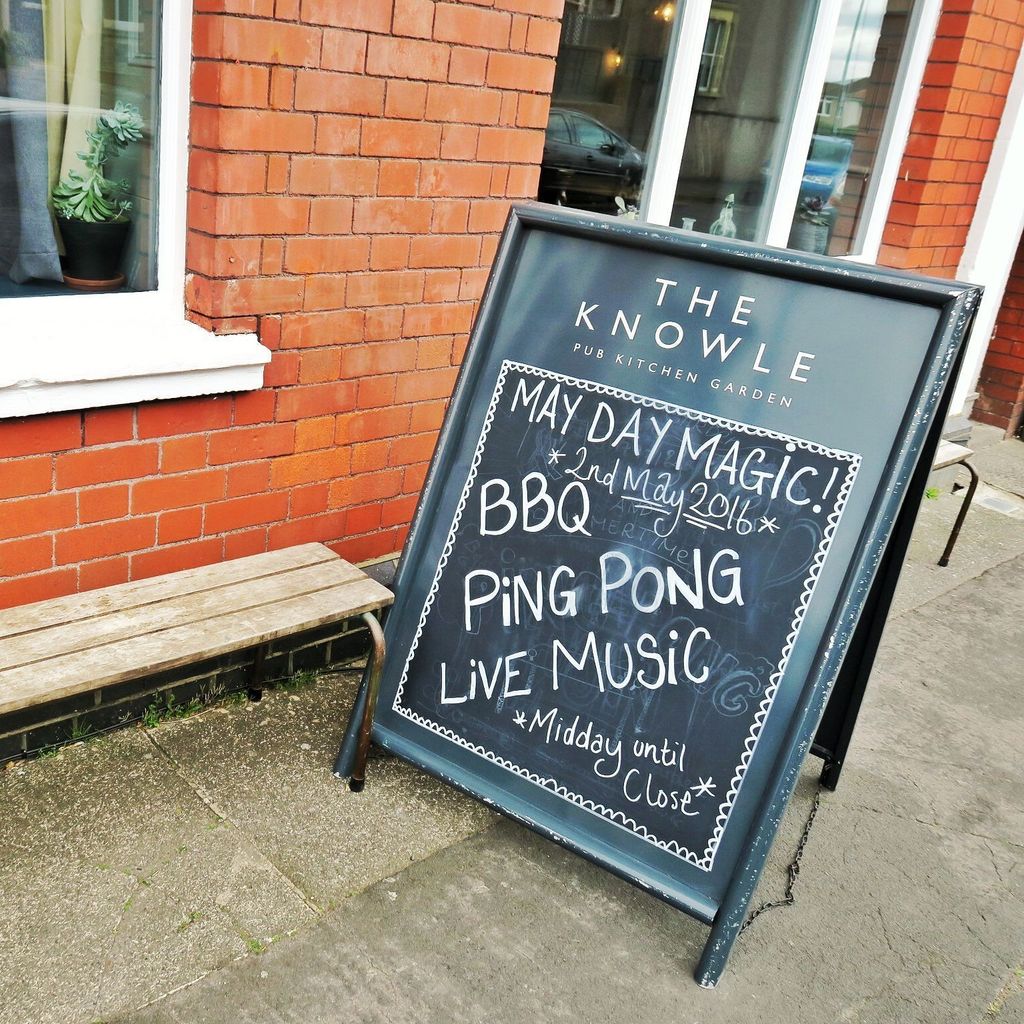 THE
KNOWLE
PUB KITCHEN GARDEN
MAY DAY MAGiC!
*2nd May 2016*
BBQ
PiNG PONG
LiVE MUSiC
*Midday until
Close*